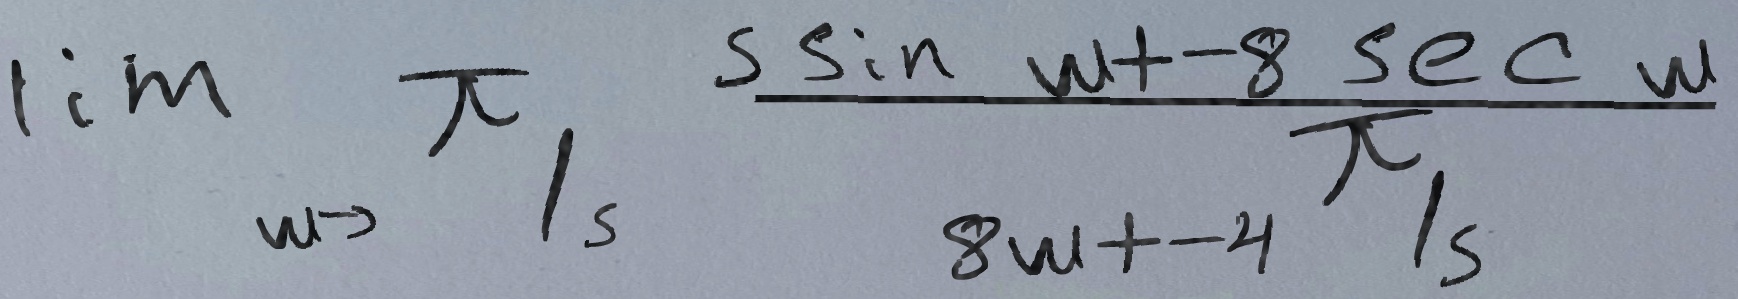 lim w→ π/s s sin w+-8 sec w
8w+-4 π/s